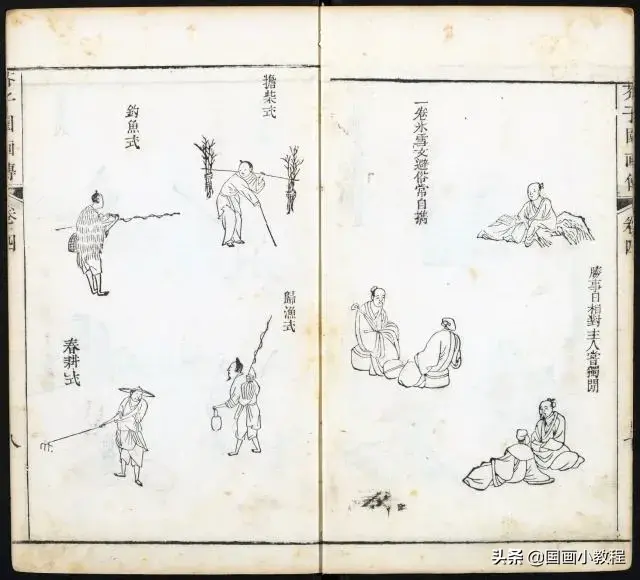 芥子園画傳
卷四
勝事日相對主人嘗獨閒
一卷氷雪文避俗常自攜
擔柴式
歸漁式
釣魚式
春耕式
芥子園画傳
卷四
头条 @国画小教程